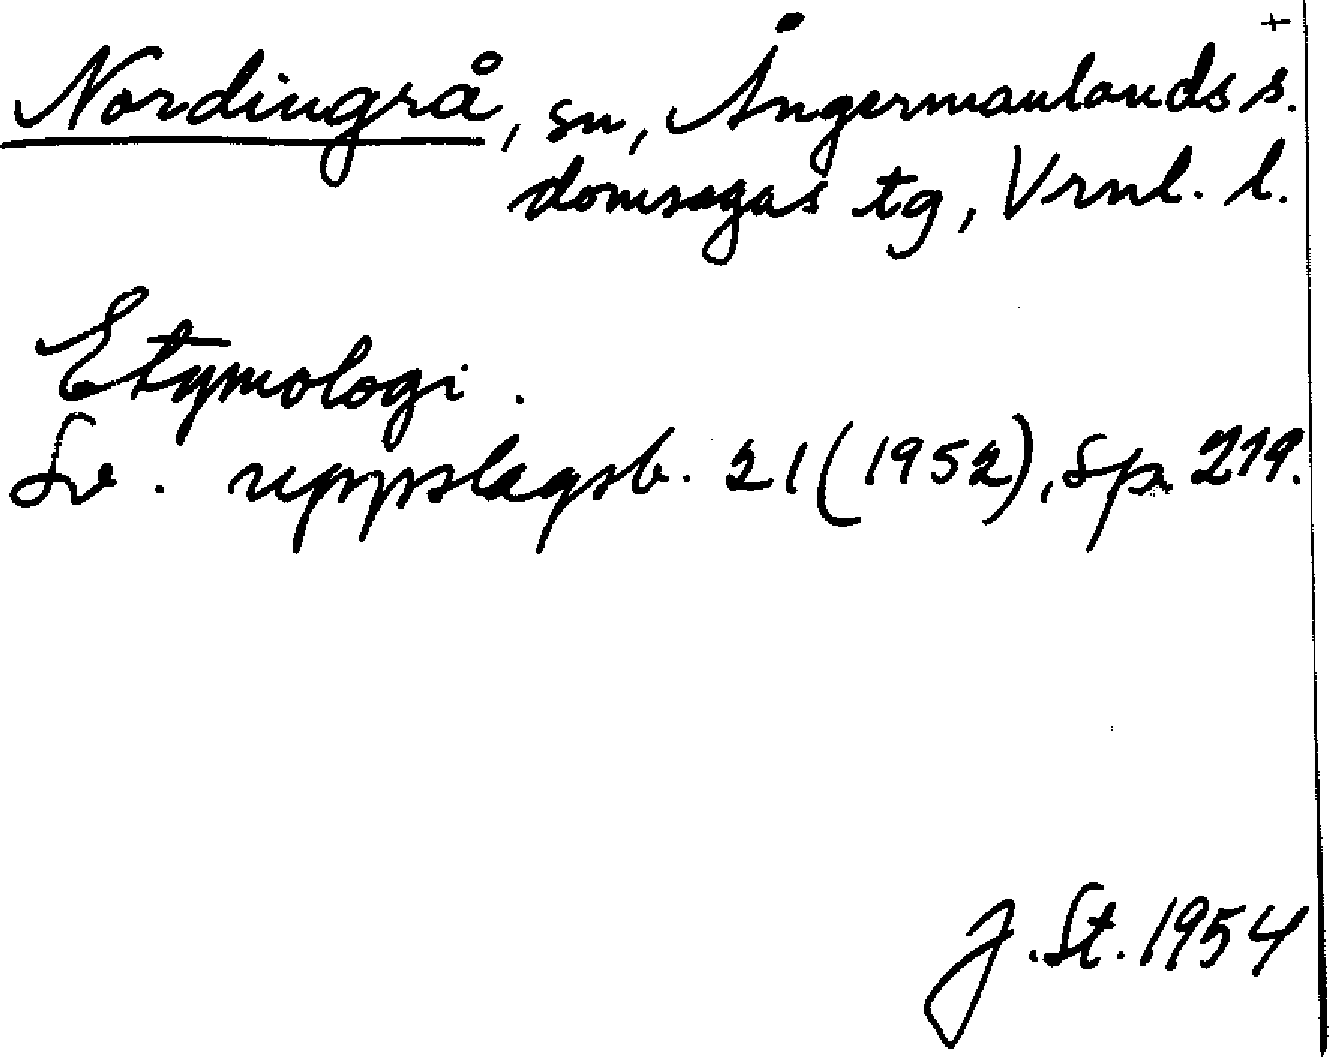 +
Nordingrå, sn, Ångermanlands s.
domsagas tg, Vrnl. l.
Etymologi.
Sv. uppslagsb. 21 (1952), sp. 219.
J. St. 1954